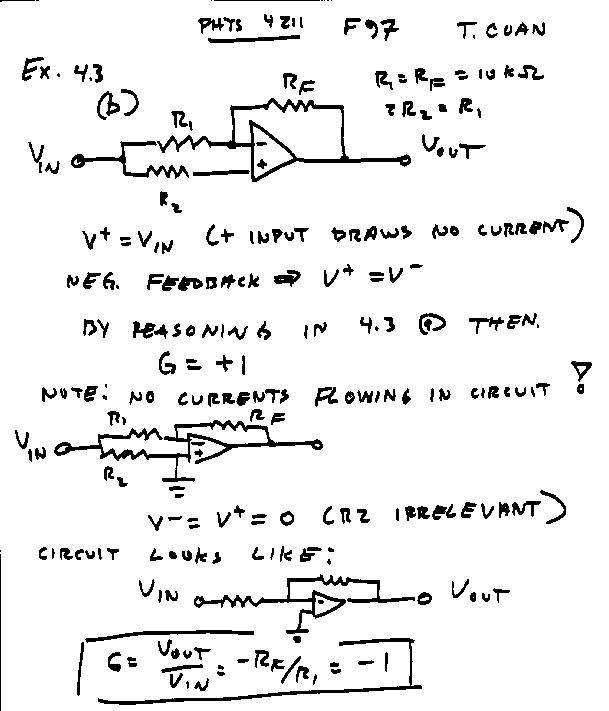 PHYS 4211 F97 T. CUAN
EX. 4.3
(b)
R₁ = R_F = 10 kΩ
2R₂ = R₁
R_F
R₁
V_IN
V_OUT
-
+
R₂
V⁺ = V_IN (+ INPUT DRAWS NO CURRENT)
NEG. FEEDBACK ⇒ V⁺ = V⁻
BY REASONING IN 4.3 ⓐ THEN.
G = +1
NOTE: NO CURRENTS FLOWING IN CIRCUIT !
R₁
R_F
V_IN
-
+
R₂
V⁻ = V⁺ = 0 (R2 IRRELEVANT)
CIRCUIT LOOKS LIKE:
V_IN
-
+
V_OUT
G = V_OUT/V_IN = -R_F/R₁ = -1